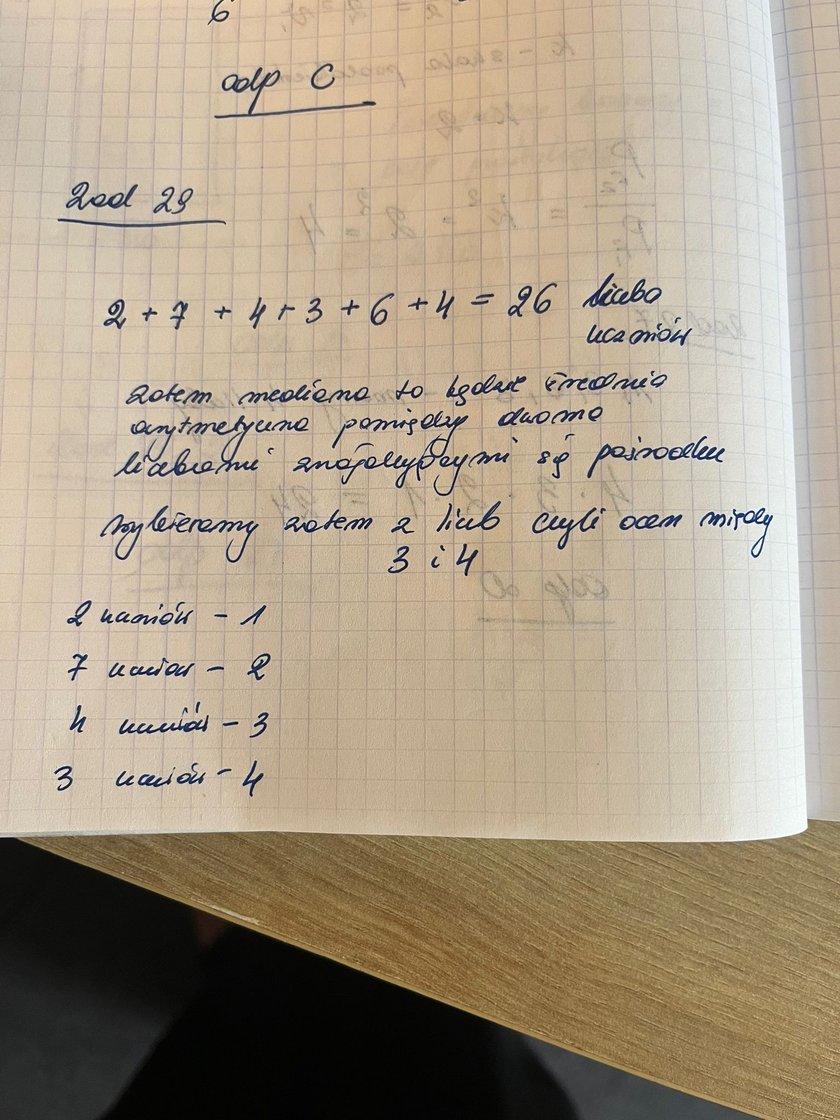 6
odp C
Zad 29
2 + 7 + 4 + 3 + 6 + 4 = 26 liczba
uczniów
zatem mediana to będzie średnia
arytmetyczna pomiędzy dwoma
liczbami znajdującymi się pośrodku
wybieramy zatem 2 liczb czyli ocen między
3 i 4
2 uczniów - 1
7 uczniów - 2
4 uczniów - 3
3 uczniów - 4